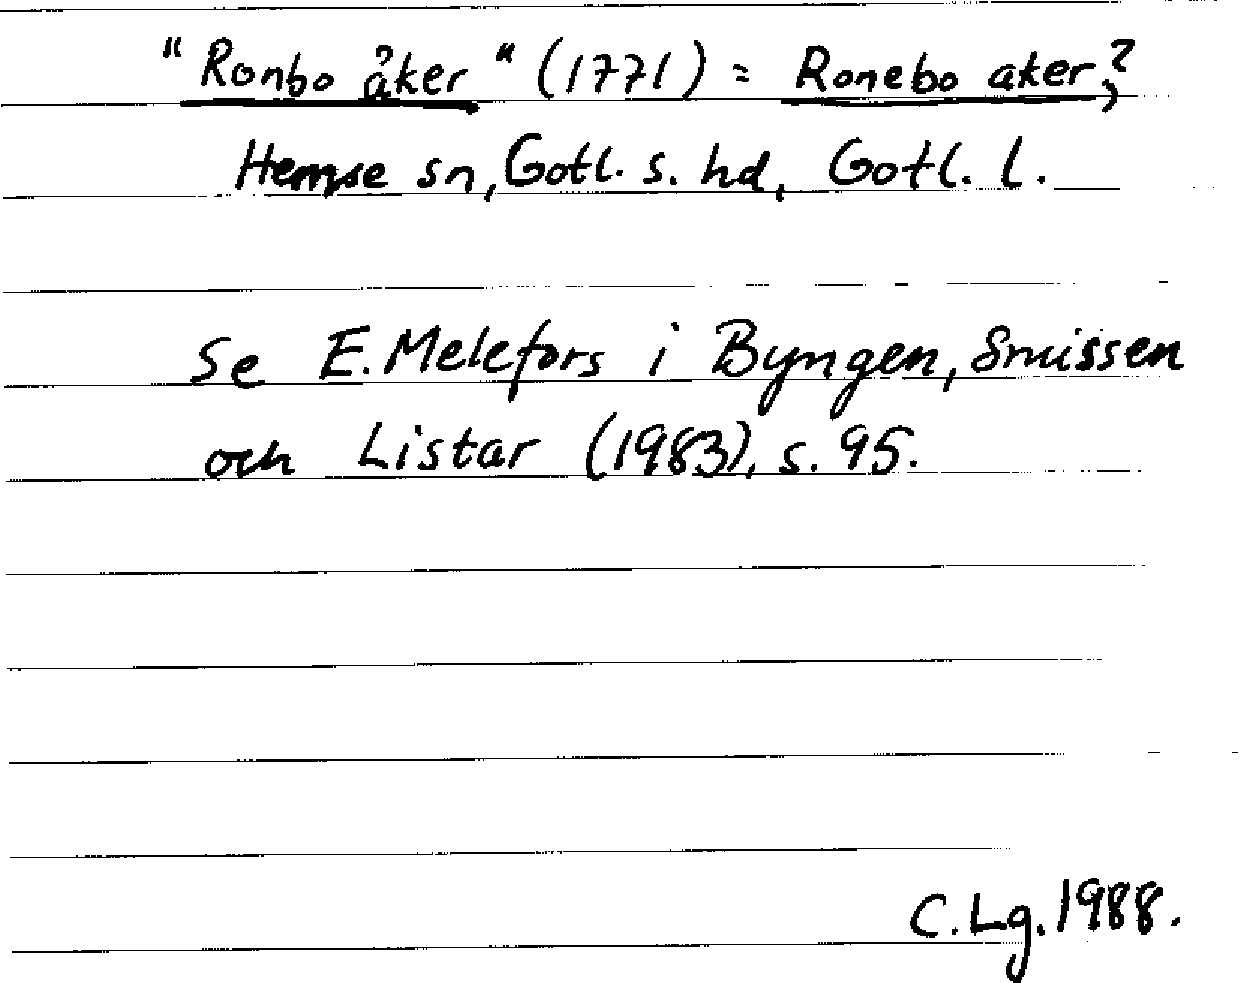 "Ronbo åker" (1771) = Ronebo aker?,
Hemse sn, Gotl. s. hd, Gotl. l.
Se E. Melefors i Byngen, Smissen
och Listar (1983), s. 95.
C. Lg. 1988.